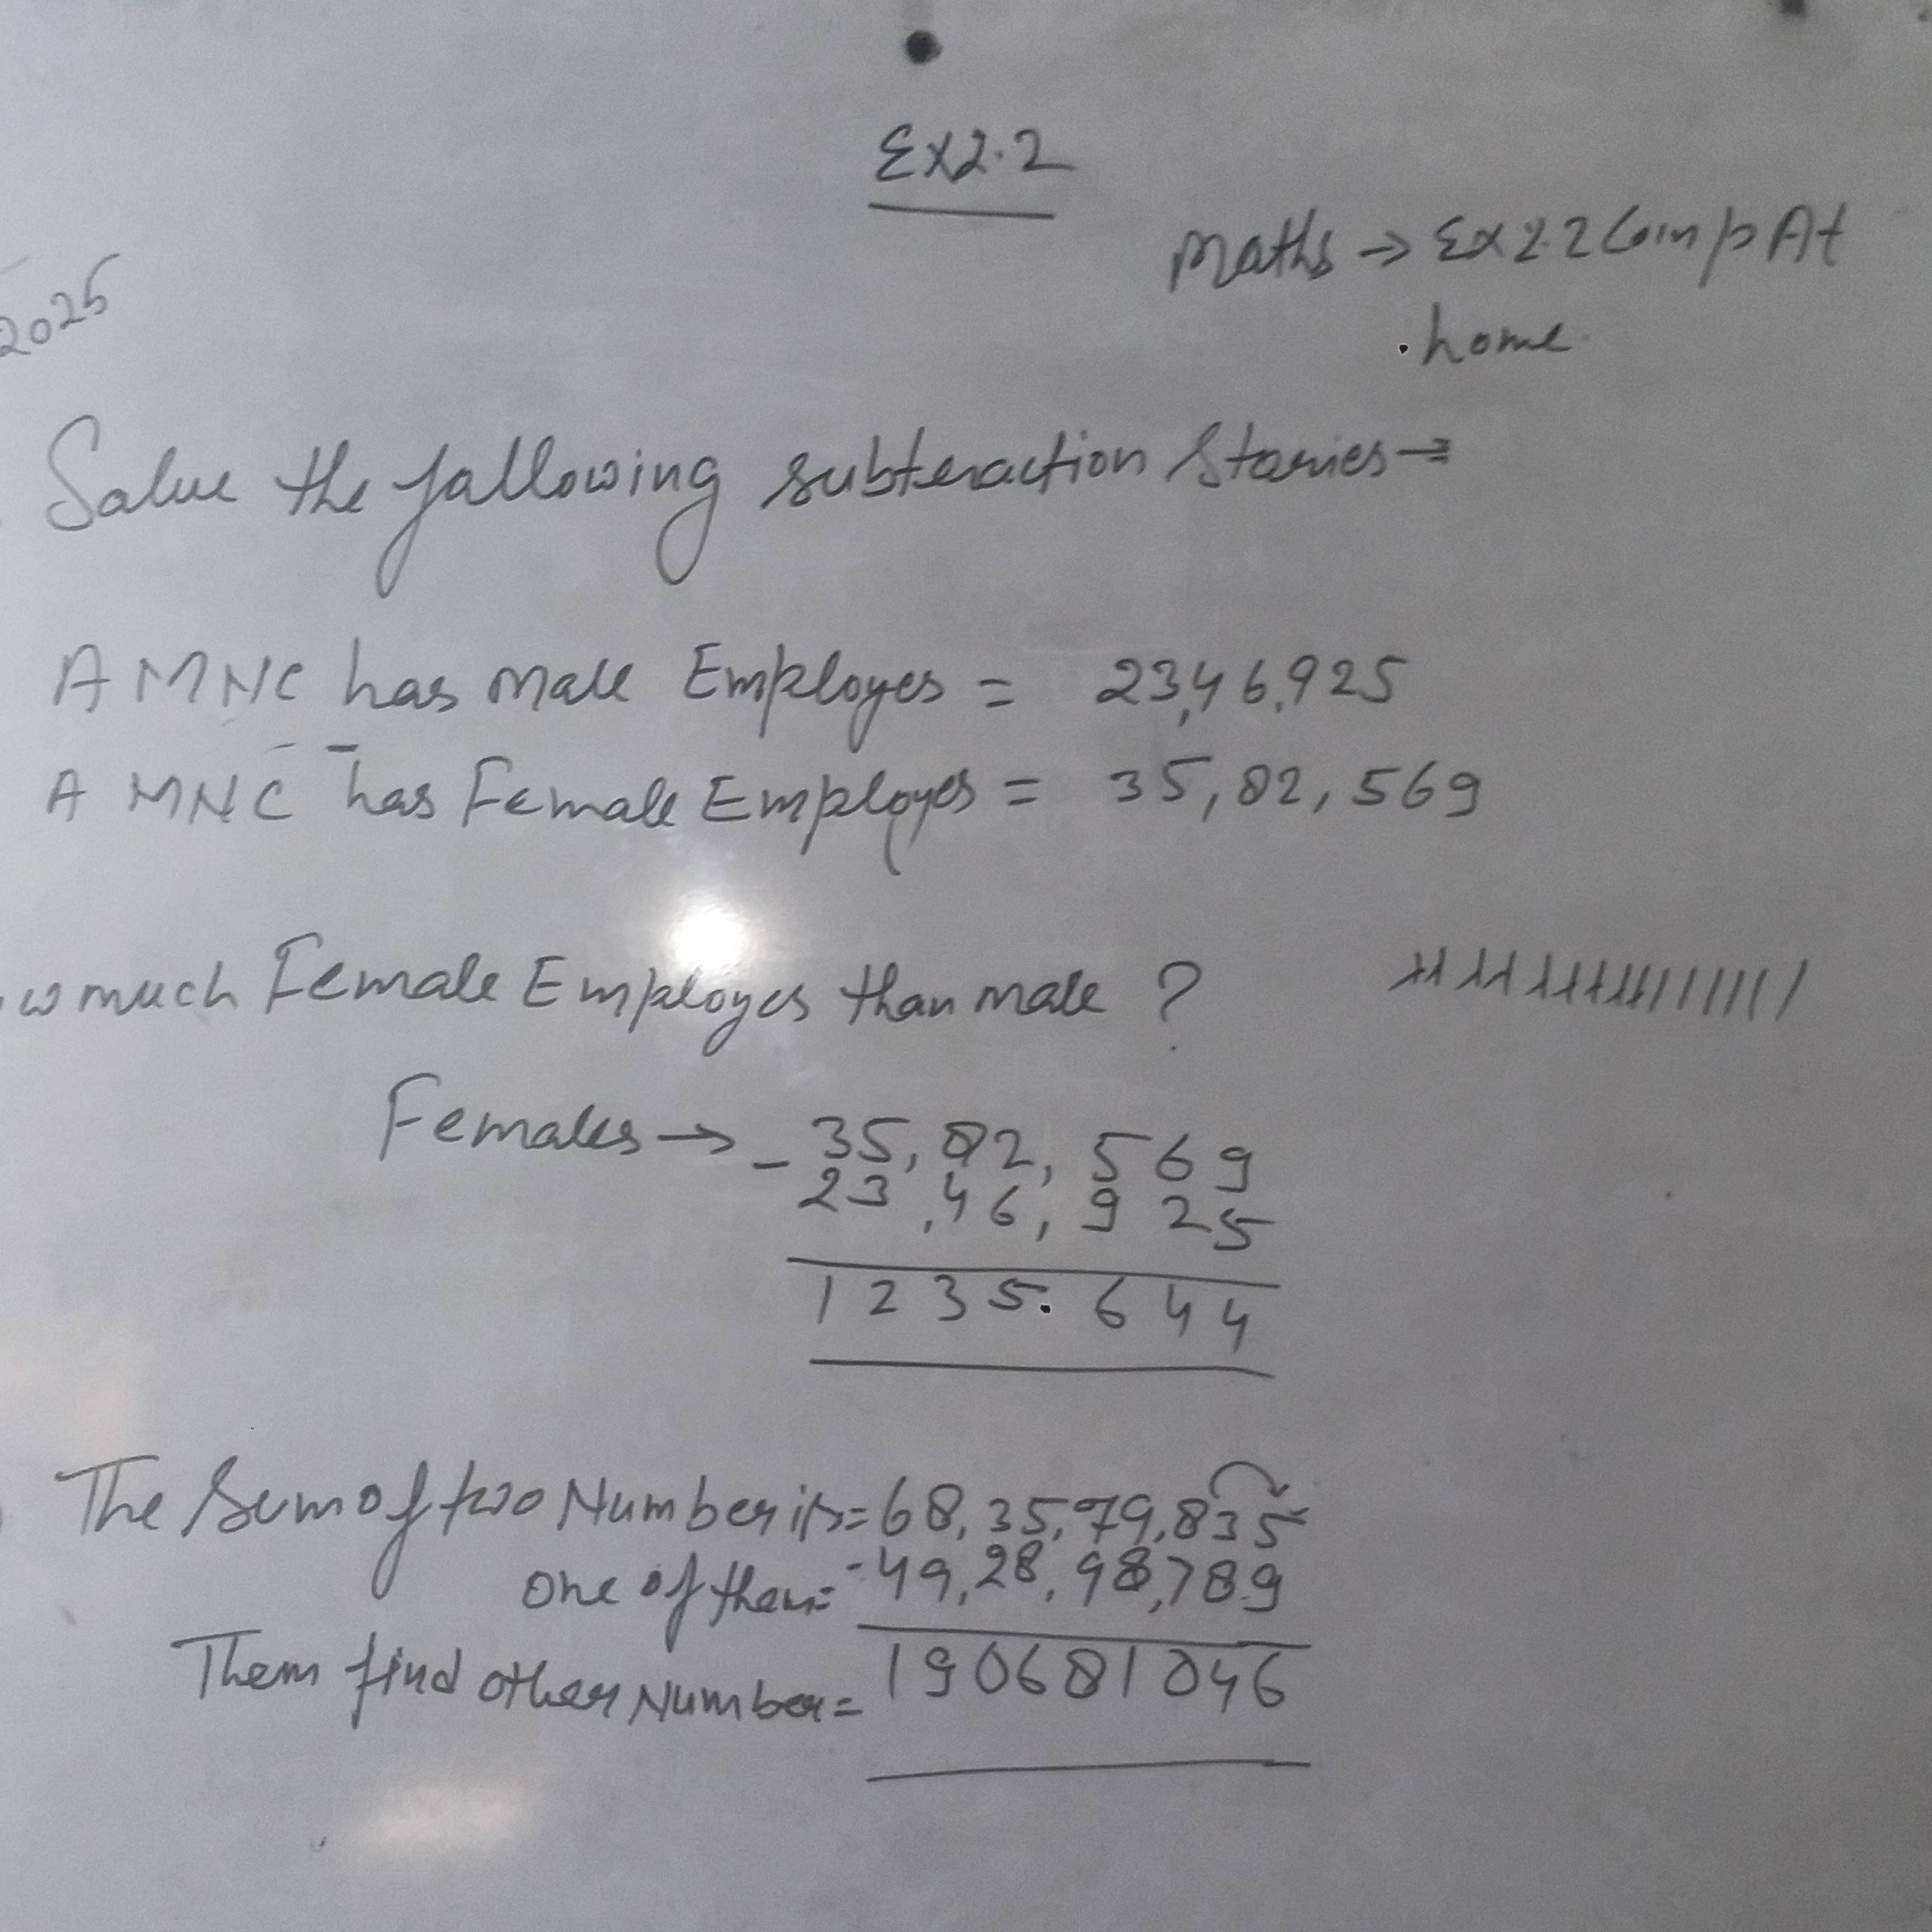 Ex2.2
Maths → Ex 2.2 Comp At
home.
2025
Salue the fallowing subteraction Stories →
A MNC has male Employes = 23,46,925
A MNC has Female Employes = 35,82,569
w much Female Employes than male ?
Females → - 35,82,569
23,46,925
1235.644
The Sum of two Number is = 68,35,79,835
one of them = - 49,28,98,789
Them find other Number = 190681046